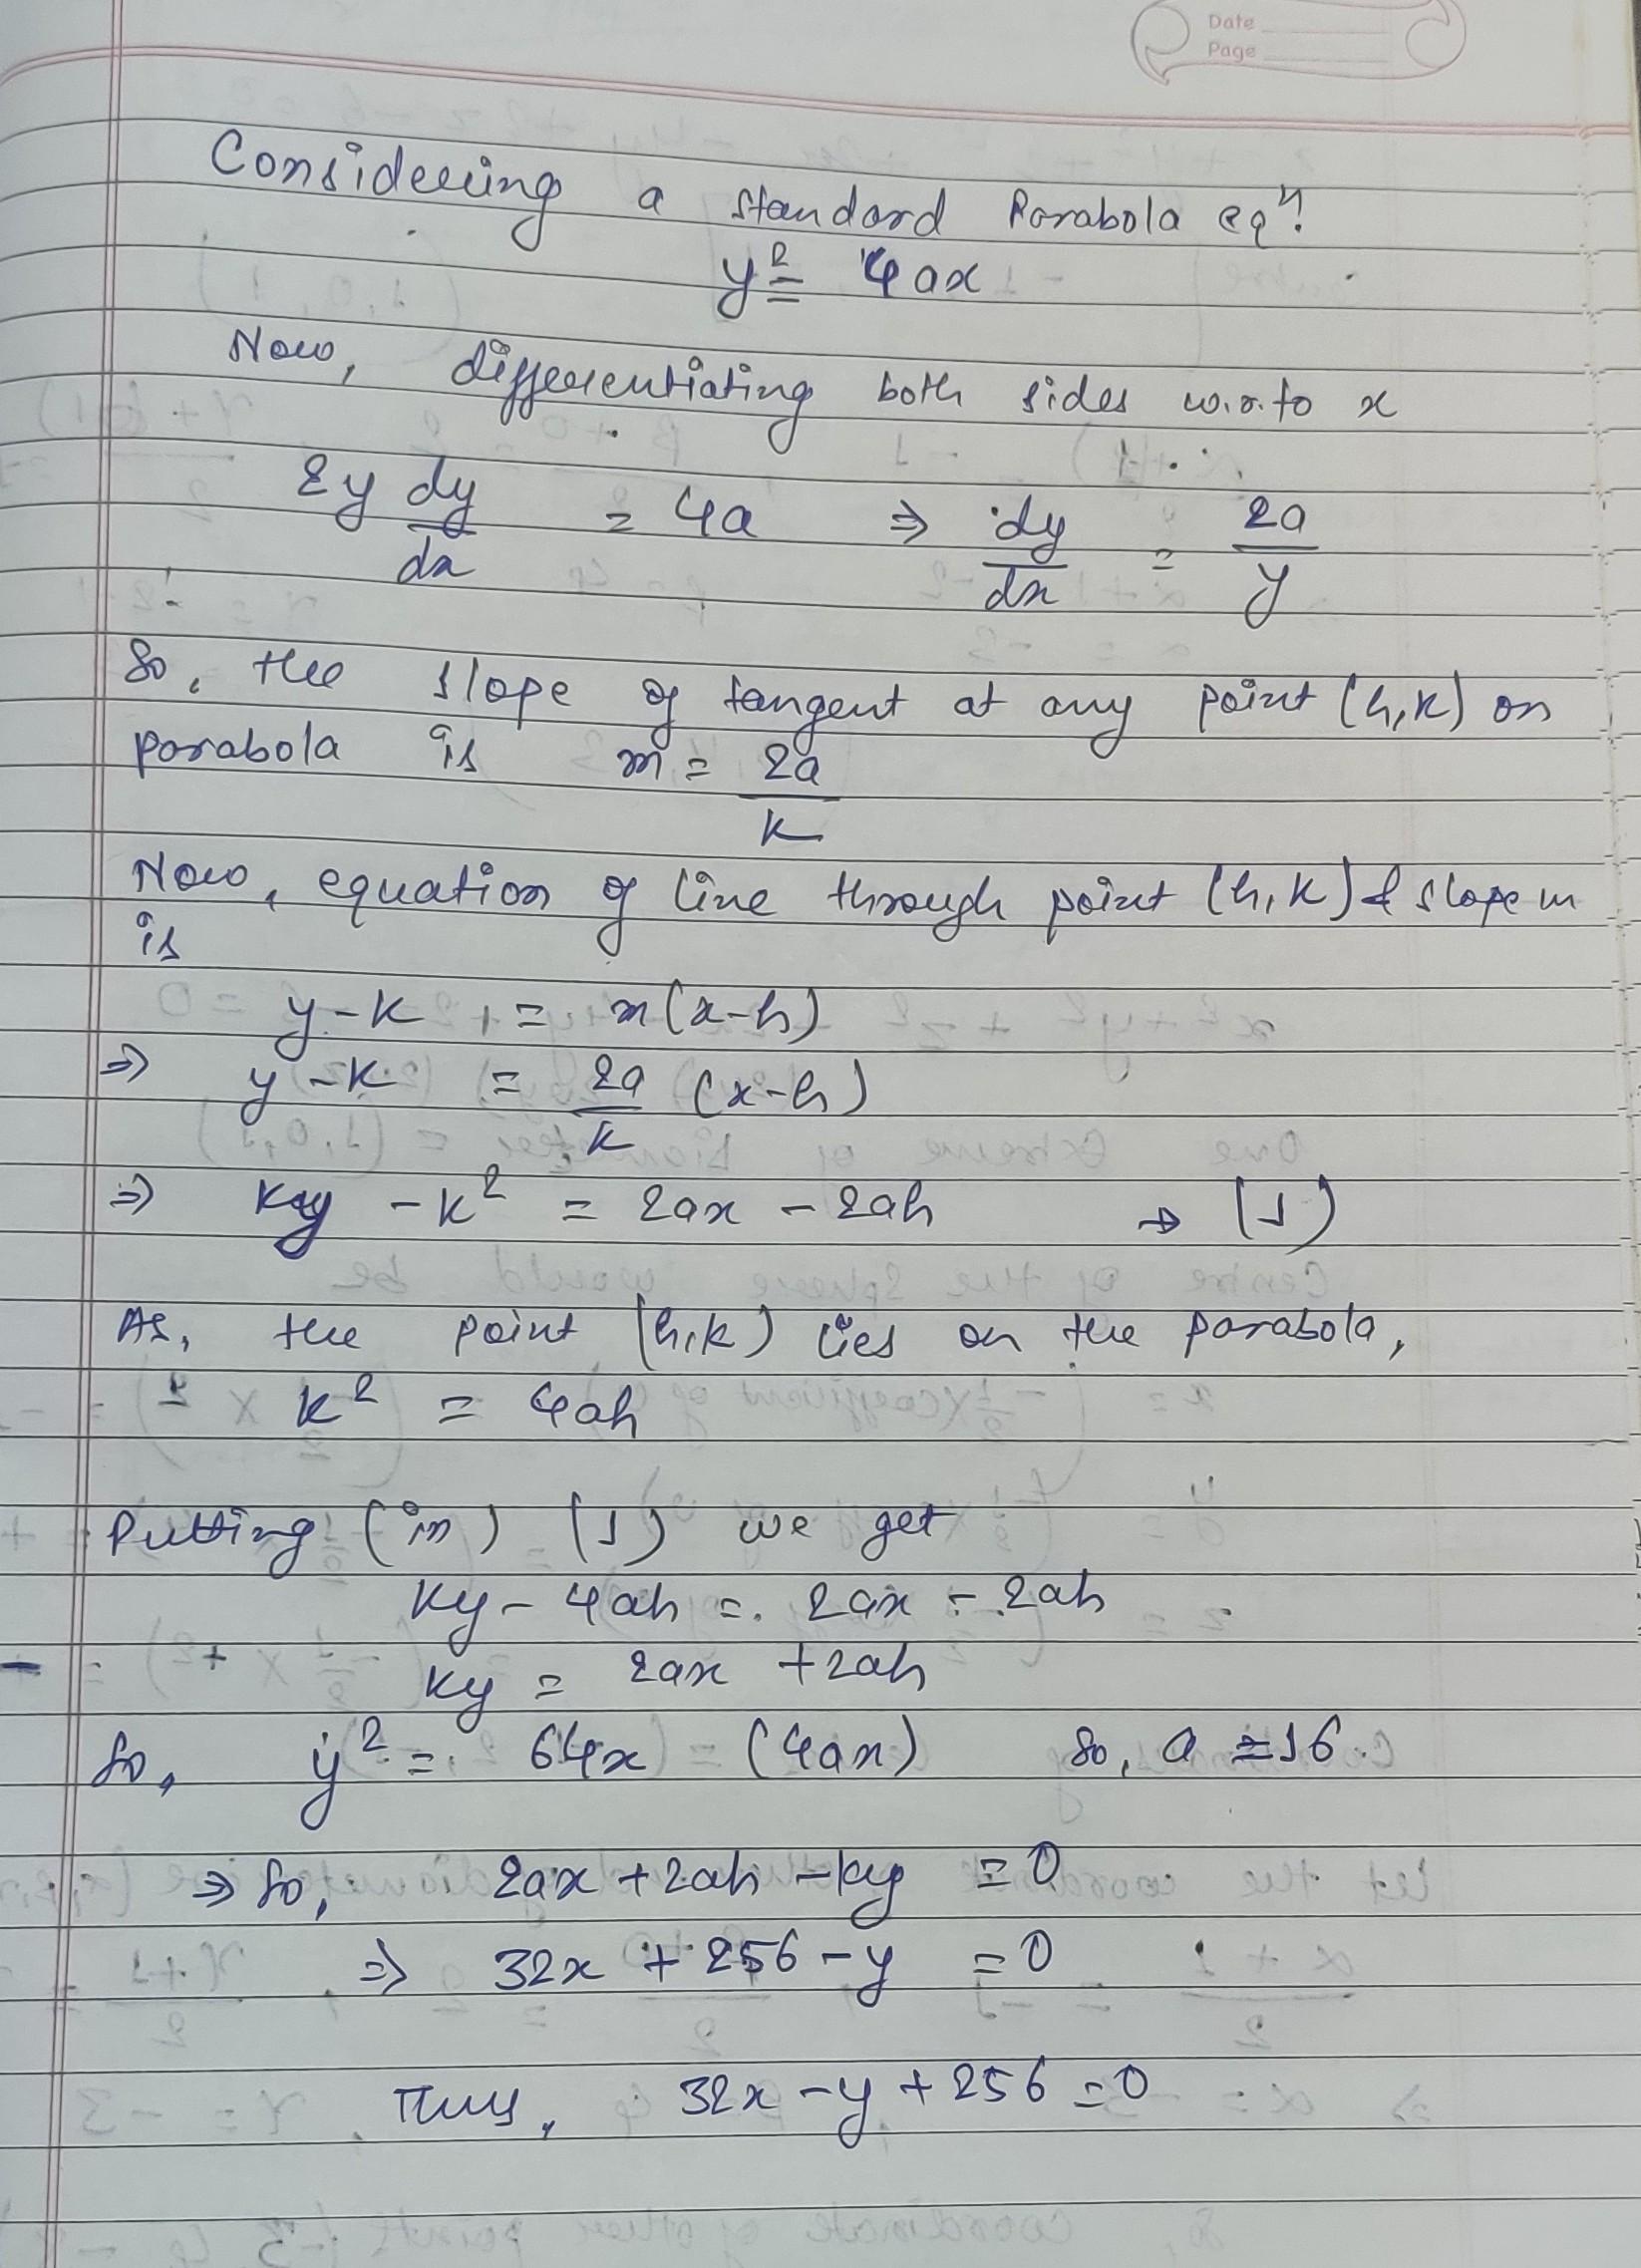 Date
Page
Considering a standard Parabola eqⁿ.
y² = 4ax
Now, differentiating both sides w.r.to x
2y dy/dx = 4a ⇒ dy/dx = 2a/y
So, the slope of tangent at any point (h,k) on
parabola is m = 2a/k
Now, equation of line through point (h,k) & slope m
is
y-k = m(x-h)
⇒ y-k = 2a/k (x-h)
⇒ ky - k² = 2ax - 2ah → (1)
As, the point (h,k) lies on the parabola,
k² = 4ah
Putting (in) (1) we get
ky - 4ah = 2ax - 2ah
ky = 2ax + 2ah
So, y² = 64x = (4ax) So, a = 16.
⇒ So, 2ax + 2ah - ky = 0
⇒ 32x + 256 - y = 0
Thus, 32x - y + 256 = 0